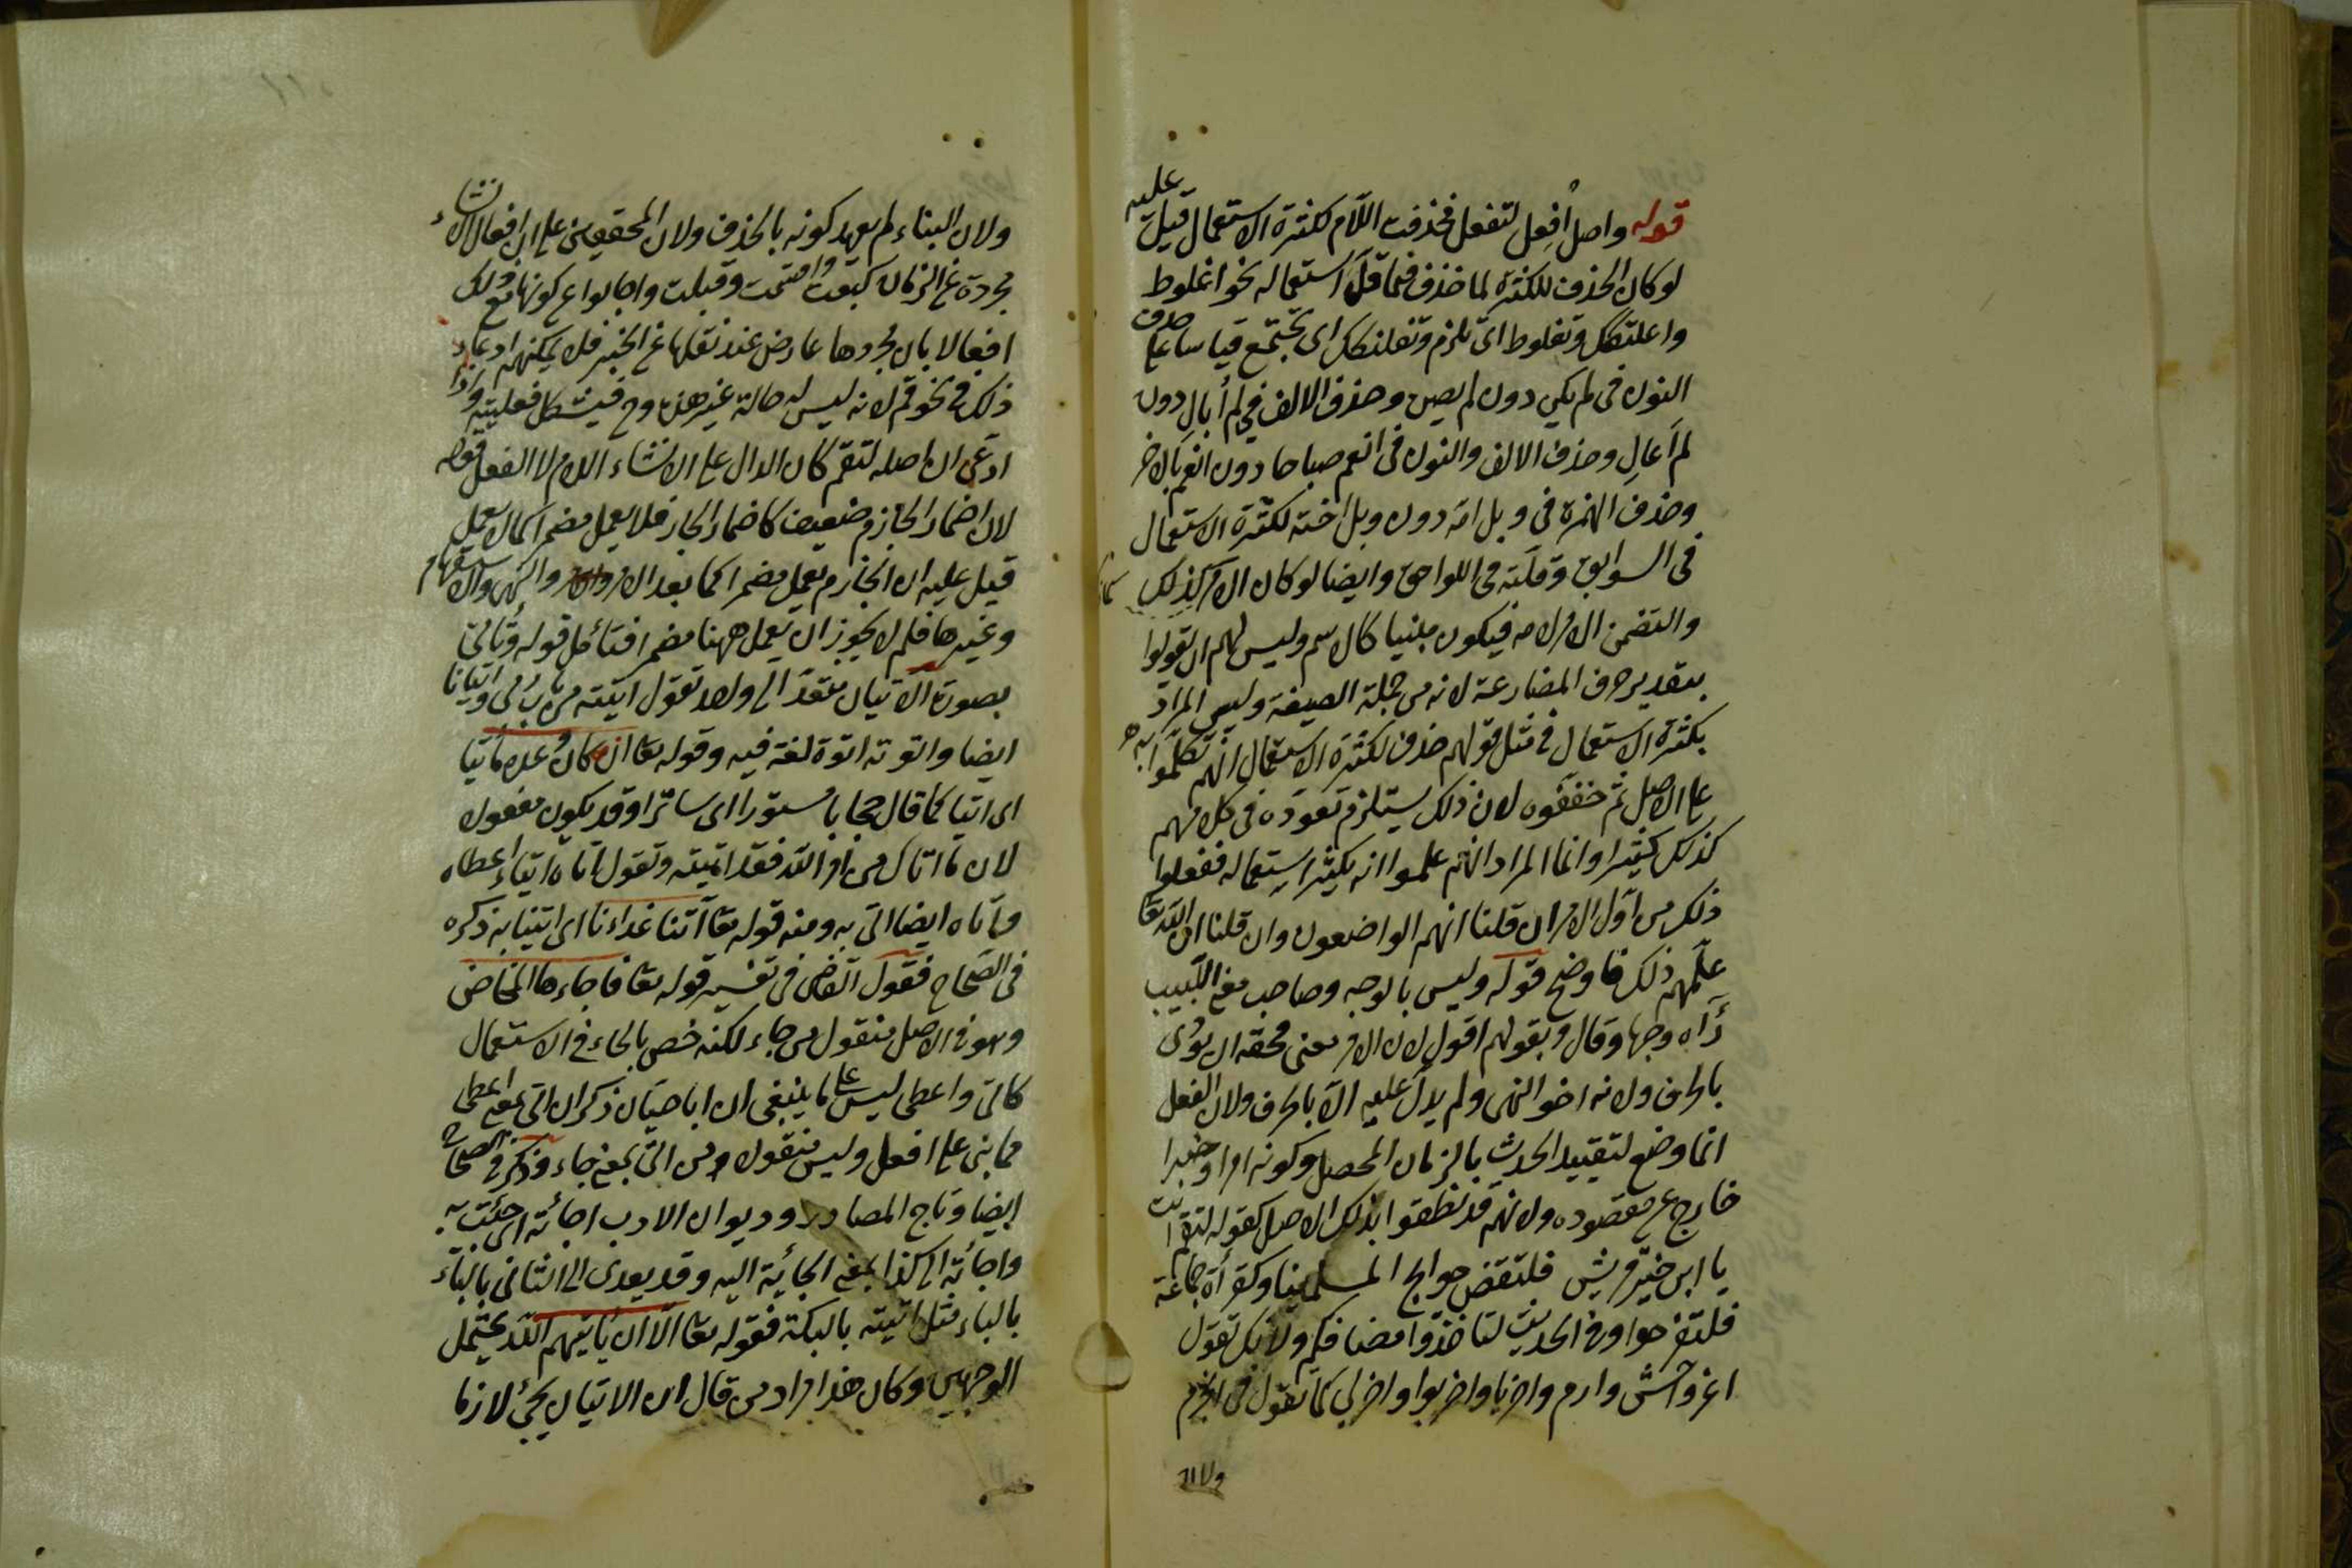 قوله واصل اُفعِل لتفعل فحذفت اللام لكثرة الاستعمال قيل عليه
لو كان الحذف للكثرة لما حذف فيما قلّ استعماله نحو اغلوط
واعلنكك وتغلوط اى تلزم وتعلنكك اى تجتمع قياسا على حذف
النون فى لم يكن دون لم يصن وحذف الالف فى لم أبالِ دون
لم أعالِ وحذف الالف والنون فى انعم صباحا دون انعم بالا
وحذف الهمزة فى ويل امه دون ويل اخته لكثرة الاستعمال
فى السوابق وقلته فى اللواحق وايضا لو كان الامر كذلك
والتضمن الامر لامه فيكون مبنيا كالاسم وليس لهم ان يقولوا
بتقدير حرف المضارعة لانه من جملة الصيغة وليس المراد
بكثرة الاستعمال فى مثل قولهم حذف لكثرة الاستعمال انهم تكلموا به
على الاصل ثم خففوه لان ذلك يستلزم تعوده فى كلامهم
كذلك كثيرا وانما المراد انهم علموا انه يكثر استعماله ففعلوا
ذلك من اول الامر ان قلنا انهم الواضعون وان قلنا ان الله تعا
علمهم ذلك فاوضح قوله وليس بالوجه وصاحب مغنى اللبيب
رآه وجها وقال وبقولهم اقول لان الامر معنى فحقه ان يؤدى
بالحرف ولانه اخو النهى ولم يدل عليه الا بالحرف ولان الفعل
انما وضع لتقييد الحدث بالزمان المحصل وكونه امرا وخبرا
خارج عن مقصوده ولانهم قد نطقوا بذلك الاصل كقوله لتقم انت
يا ابن خير قريش فلتقض حوايج المسلمينا وكقرأة جماعة
فلتفرحوا وفى الحديث لتاخذوا مصافكم ولانك تقول
اغز واخش وارم واضربا واضربوا واضربى كما تقول فى الجزم
ولان
ولان البناء لم يعهد كونه بالحذف ولان المحققين على ان افعال الانشاء
مجردة عن الزمان كبعت واقسمت وقبلت واجابوا عن كونها مع ذلك
افعالا بان تجردها عارض عند نقلها عن الخبر فلا يمكنهم ادعاء
ذلك فى نحو قم لانه ليس له حالة غير هذه وح فيشكل فعليته واذا
ادعى ان اصله لتقم كان الدال على الانشاء اللام لا الفعل قوله
لان اضمار الجازم ضعيف كاضمار الجار فلا يعمل مضمرا كما لا يعمل
قيل عليه ان الجازم يعمل مضمرا كما بعد الامر والنهى والاستفهام
وغيرها فلم لا يجوز ان يعمل ههنا مضمرا فتأمل قوله وتاتى
بصورة الاتيان متعد الى واحد تقول اتيته من باب رمى واتيانا
ايضا واتوته اتوة لغة فيه وقوله تعا انه كان وعده مأتيا
اى اتيا كما قال حجابا مستورا اى ساترا وقد يكون مفعولا
لان ما اتاك من امر الله فقد اتيته وتقول اتاه ايتاء اعطاه
واتاه ايضا اتى به ومنه قوله تعا آتنا غداءنا اى ايتنا به ذكره
فى الصحاح فقول القاضى فى تفسير قوله تعا فاجاءها المخاض
وهو فى الاصل منقول من جاء لكنه خص بالجاء فى الاستعمال
كآتى واعطى ليس على ما ينبغى ان ابا حيان ذكر ان اتى بمعنى اعطى
مما بنى على افعل وليس منقولا من اتى بمعنى جاء وذكر فى الصحاح
ايضا وتاج المصادر وديوان الادب اجاته اى جئت به
واجاته الى كذا بمعنى الجاته اليه وقد يعدى الى الثانى بالباء
بالباء مثل اتيته بالبكة فقوله تعا الا ان ياتيهم الله يحتمل
الوجهين وكان هذا مراد من قال ان الاتيان يجئ لازما